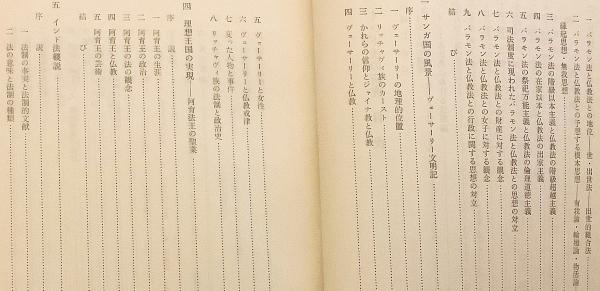 一 バラモン法と仏教法との地位──世・出世法──出世的綜合法
二 バラモン法と仏教法との予想する根本思想──有我論・輪廻論・物活論
縁起思想・無我思想
三 バラモン法の階級以本主義と仏教法の階級超越主義
四 バラモン法の在家以本と仏教法の出家主義
五 バラモン法の祭祀万能主義と仏教法の倫理道徳主義
六 司法制度に現われたバラモン法と仏教法との思想の対立
七 バラモン法と仏教法との財産に対する観念
八 バラモン法と仏教法との女子に対する観念
九 バラモン法と仏教法との行政に関する思想の対立
結び
一 サンガ国の風景──ヴェーサーリー文明記
序
一 ヴェーサーリーの地理的位置
二 リッチャヴィ族のカースト
三 かれらの信仰とジャイナ教と仏教
四 ヴェーサーリーと仏教
五 ヴェーサーリーと女性
六 ヴェーサーリーと仏教戒律
七 変った人物と事件
八 リッチャヴィ族の法制と政治史
結び
四 理想王国の実現──阿育法王の聖業
序説
一 阿育王の生涯
二 阿育王の政治
三 阿育王の法の観念
四 阿育王と仏教
五 阿育王の芸術
結び
五 インド法概説
序説
一 法制の事実と法制的文献
二 法の意味と法制の種類